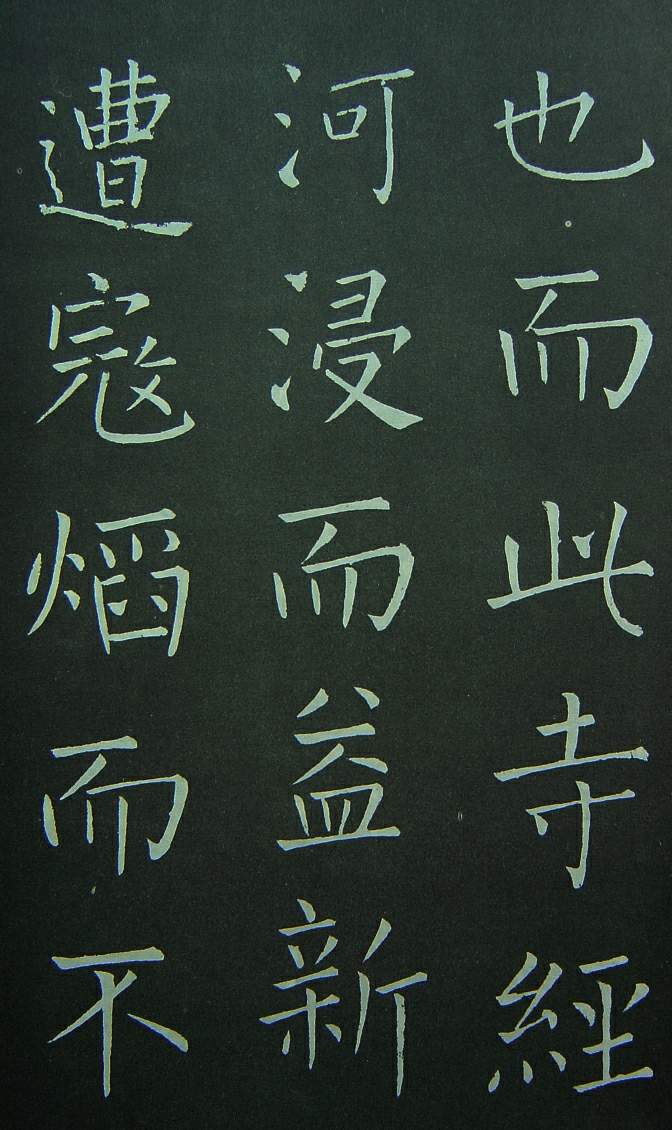 也而此寺經
河浸而益新
遭寇而不